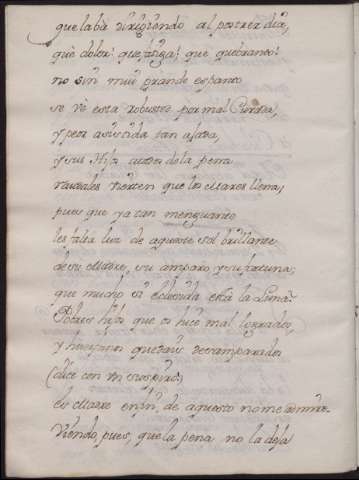 que la bà dirigiendo al postrer dia,
què dolor! que ansia! que quebranto!
no sin mui grande espanto
se vè esta robustez por mal Curada,
y peor asistida tan ajada,
y sus Hijas autos de la pena
raudales vierten que los Mares llena,
pues que ya tan menguante
les falta luz de aqueste sol brillante
de su Madre, su amparo, y su fortuna;
que mucho si eclipsada està la Luna?
Pobres hijas que os hice mal logradas,
y huerfanas quedais desamparadas
(dice con Vn suspiro)
es Madre en fin, de aquesto no me admiro.
Viendo, pues, que la pena no la deja